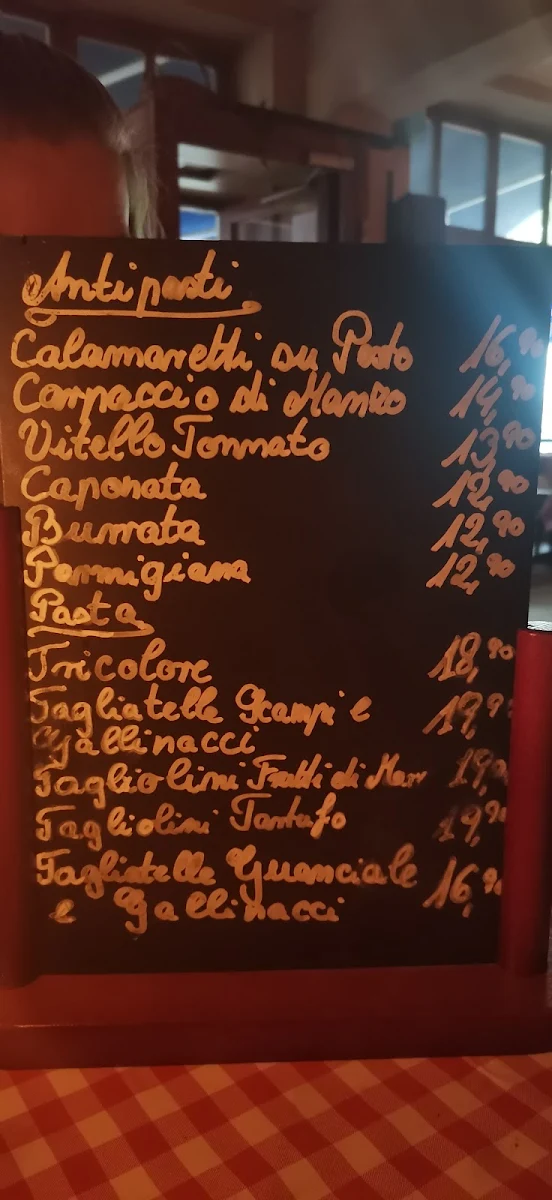 Antipasti
Calamaretti su Pesto 16,90
Carpaccio di Manzo 14,90
Vitello Tonnato 13,90
Caponata 12,90
Burrata 12,90
Parmigiana 12,90
Pasta
Tricolore 18,90
Tagliatelle Scampi e 19,90
Gallinacci
Tagliolini Frutti di Mare 19,90
Tagliolini Tartufo 19,90
Tagliatelle Guanciale 16,90
e Gallinacci